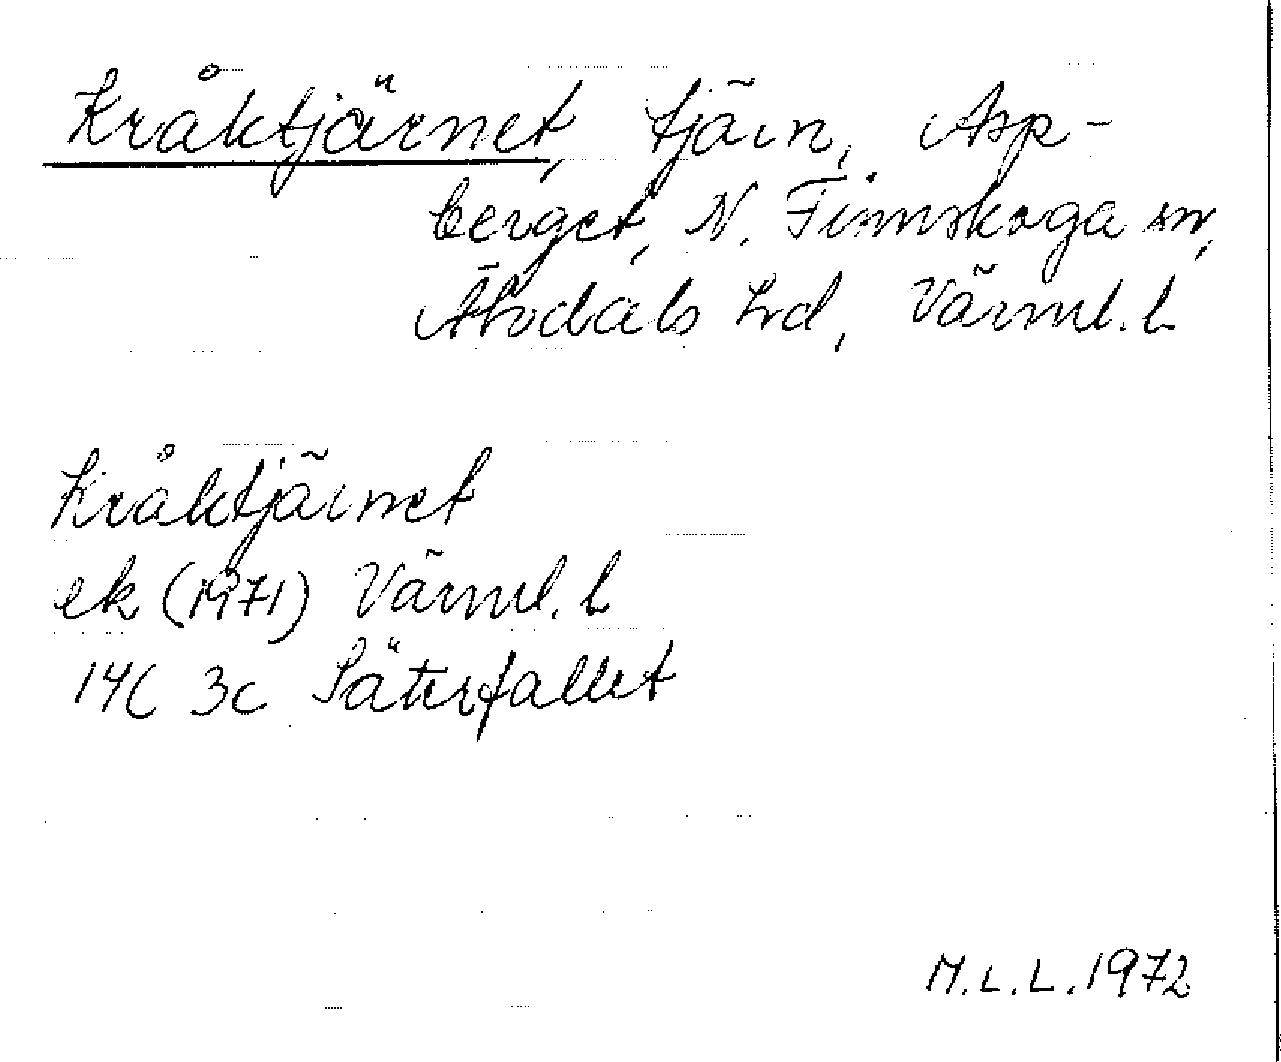 Kråktjärnet, tjärn, Asp-
berget, N. Finnskoga sn,
Älvdals hd, Värml. l.
Kråktjärnet
ek (1971) Värml. l
14C 3c Säterfallet
M.L.L. 1972